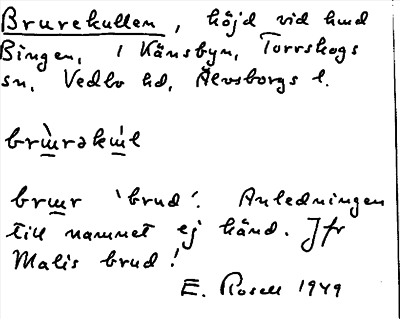 Brurekullen, höjd vid hmd
Bingen, i Känsbyn, Torrskogs
sn, Vedbo hd, Älvsborgs l.
brɯ̀rəkɯ́l
brɯr 'brud'. Anledningen
till namnet ej känd. Jfr
Malis brud!
E. Rosell 1949